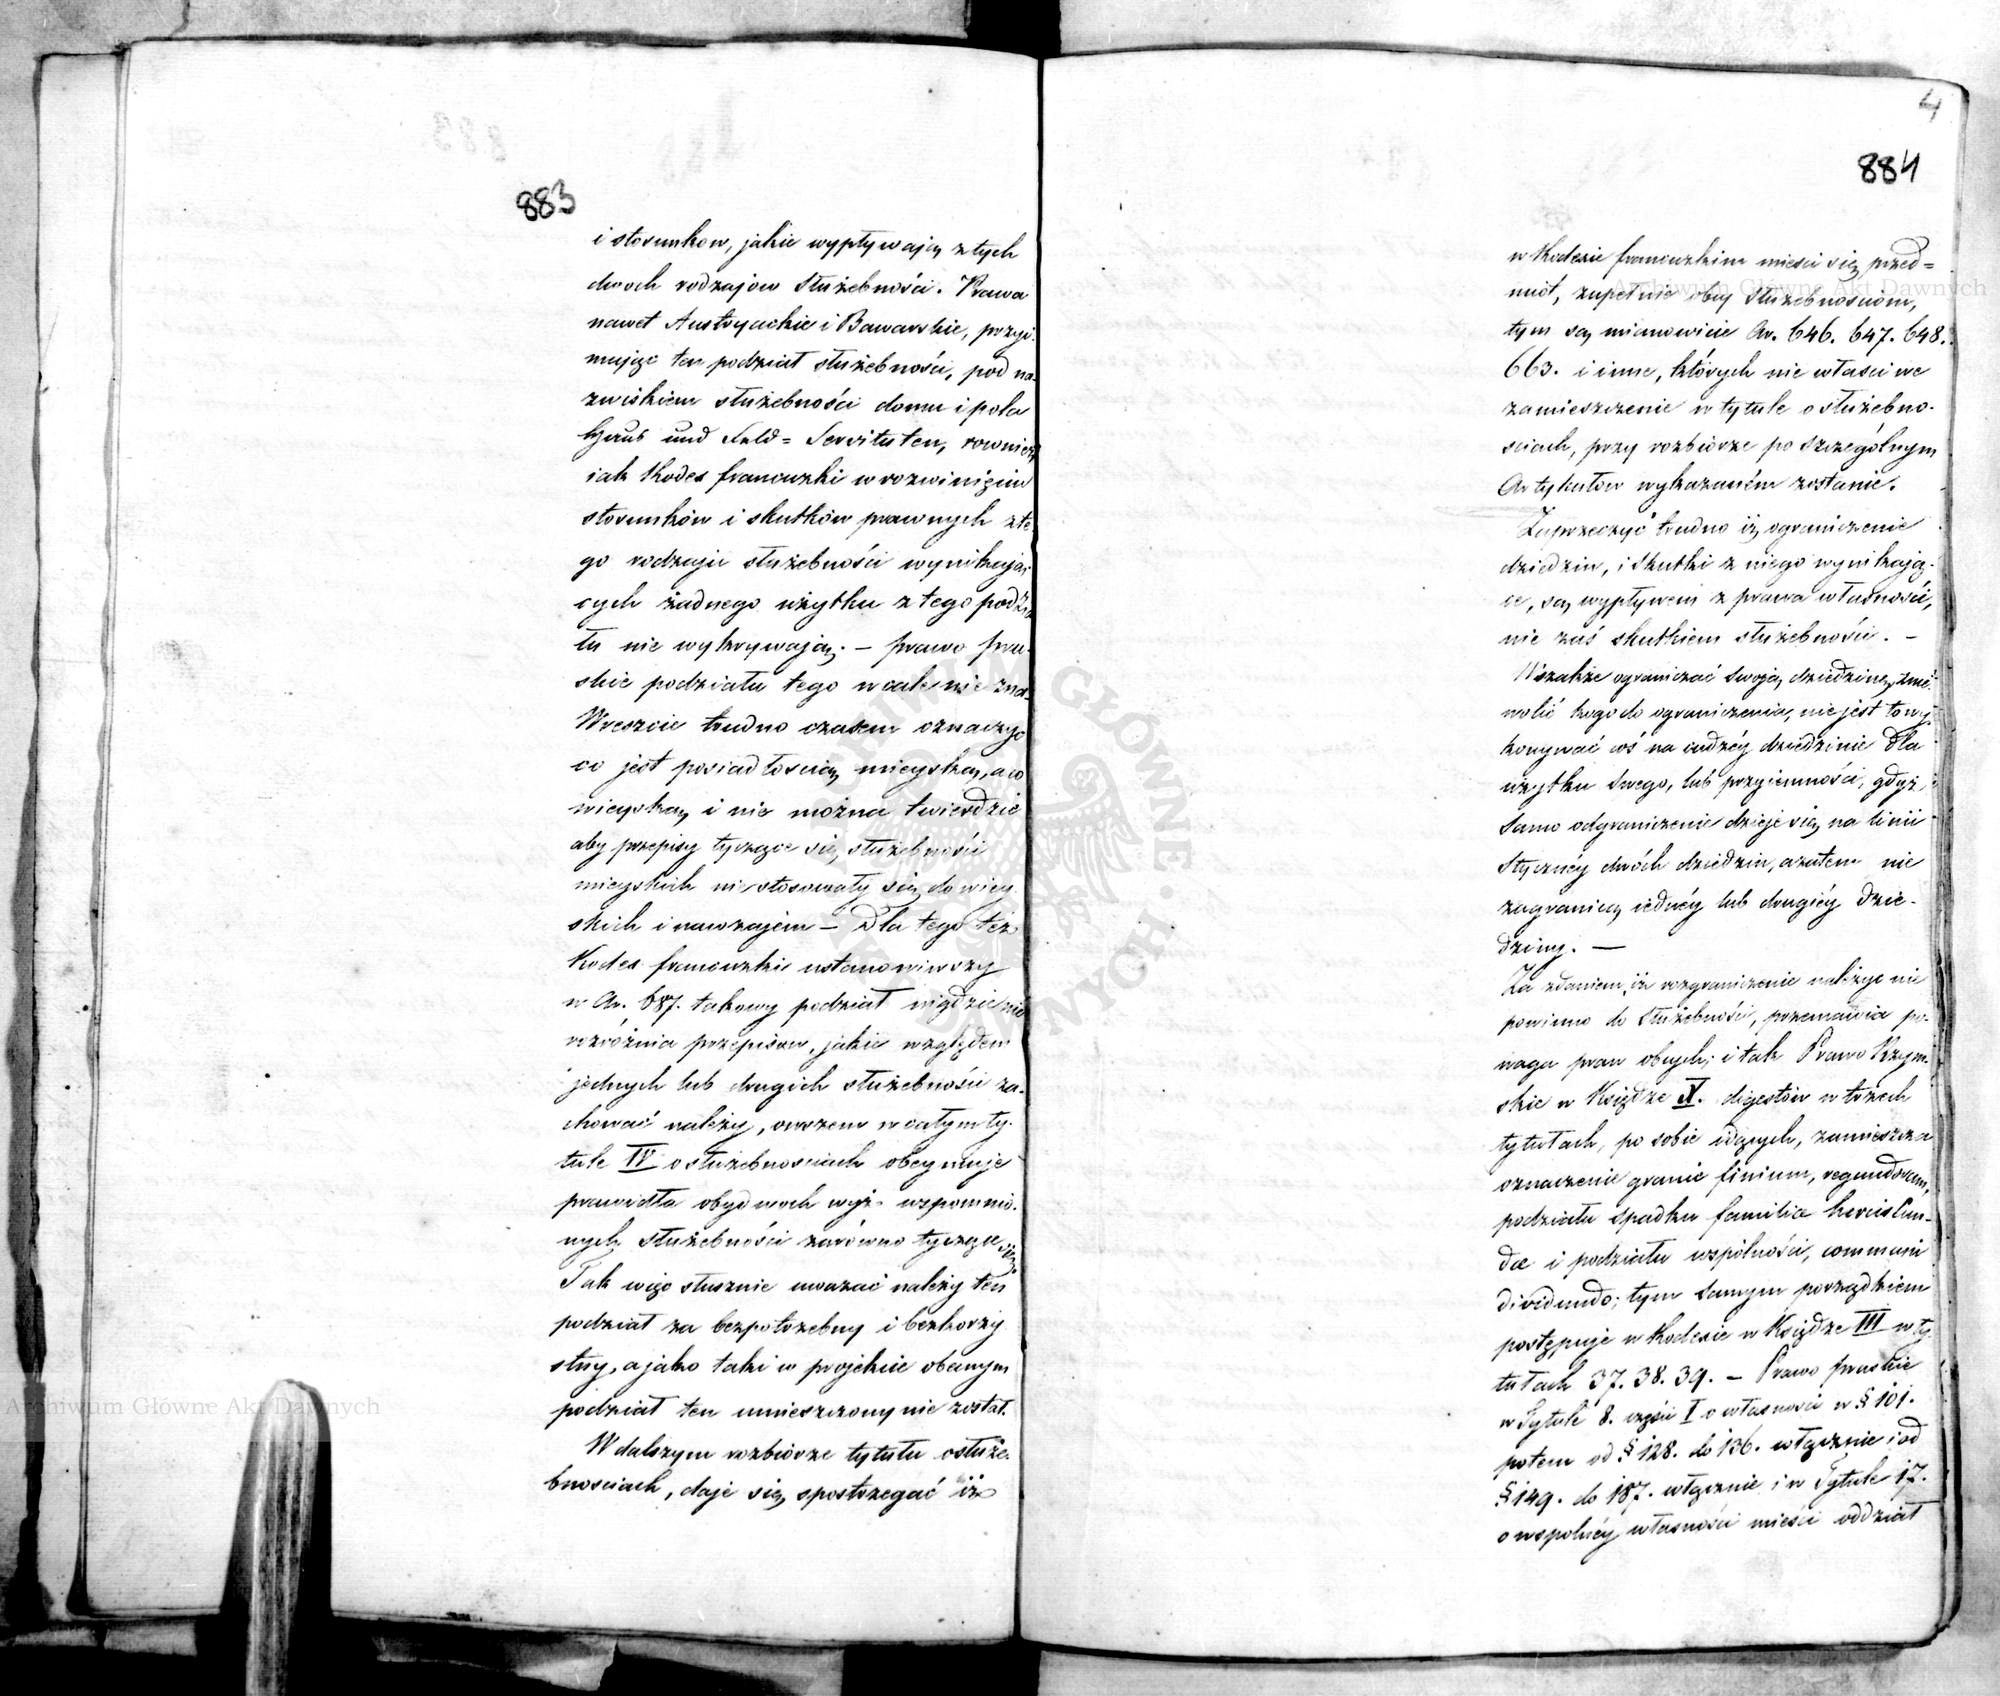 883
i stosunkow, jakie wypływaią z tych
dwoch rodzajow służebności. Prawa
nawet Austryackie i Bawarskie, przyi-
mując ten podział służebności, pod na-
zwiskiem służebności domu i pola
Haus und Feld= Servituten, rownież
iak Kodex francuzki w rozwinięciu
stosunków i skutków prawnych z te-
go rodzaju służebności wynikają-
cych żadnego użytku z tego podzia
łu nie wykrywają. — prawo pru-
skie podziału tego wcale nie zna.
Wreszcie trudno czasem oznaczyć
co jest posiadłością mieyską, a co
wieyską i nie można twierdzić
aby przepisy tyczące się służebności
mieyskich nie stosowały się do wiey
skich i nawzajem — Dla tego też
Kodex francuzki ustanowiwszy
w Ar. 687. takowy podział nigdzie nie
rozróżnia przepisow, jakie względem
jednych lub drugich służebności za-
chować należy, owszem w całym ty-
tule IV o służebnosciach obeymuje
prawidła obydwoch wyż. wspomnio-
nych służebności zarówno tyczące się.
Tak więc słusznie uważać należy ten
podział za bezpotrzebny i bezkorzy
stny, a jako taki w projekcie obecnym
podział ten umieszczony nie został.
W dalszym rozbiorze tytułu o służe-
bnosciach, daje się spostrzegać iż
4
884
w Kodexie francuzkim mieści się przed=
miot, zupełnie obcy służebnosciom,
tym są mianowicie Ar. 646. 647. 648.
663. i inne, których nie właściwe
zamieszczenie w tytule o służebno-
sciach, przy rozbiorze po szczególnym
Artykułów wykazaném zostanie.
Zaprzeczyć trudno iż ograniczenie
dziedzin, i skutki z niego wynikają-
ce, są wypływem z prawa własności,
nie zaś skutkiem służebności. —
Wszakże ograniczać swoją dziedzinę, znie-
wolić kogo do ograniczenia, nie jest to wy-
konywać coś na cudzéy dziedzinie dla
użytku swego, lub przyiemności, gdyż
samo odgraniczenie dzieje się na linii
stycznéy dwóch dziedzin, a zatem nie
zagranicą iednéy lub drugiéy dzie-
dziny. —
Za zdaniem, iż rozgraniczenie należyć nie
powinno do służebności, przemawia po-
waga praw obcych; i tak Prawo Rzym-
skie w Księdze X. digestów w trzech
tytułach, po sobie idących, zamieszcza
oznaczenie granic finium, regundorum,
podziału spadku familia herciscun-
dæ i podziału wspólności, communi
dividundo; tym samym porządkiem
postępuje w Kodexie w Księdze III w ty
tułach 37. 38. 39. — Prawo pruskie
w Tytule 8. częśći I o własnosci w § 101.
potem od § 128. do 136. włącznie i od
§ 149. do 187. włącznie i w Tytule 17.
o wspolnéy własności mieści oddział